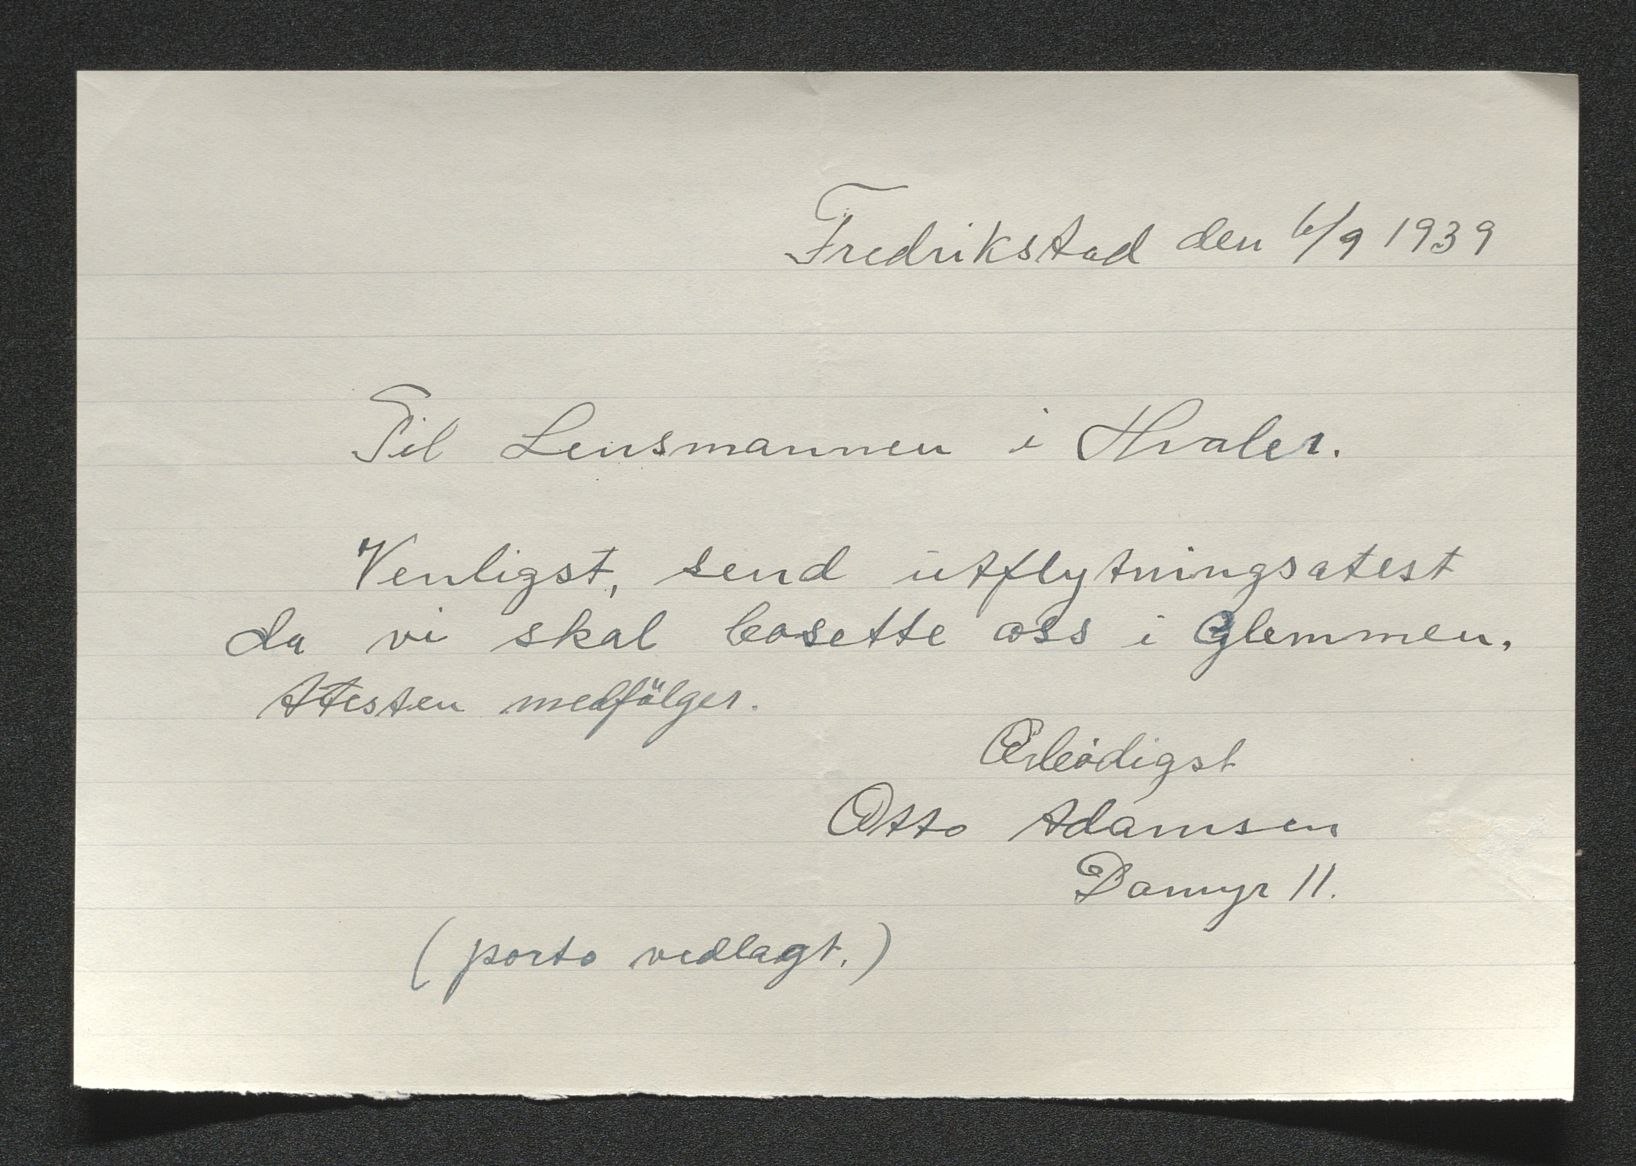 Fredrikstad den 6/9 1939
Til Lensmannen i Hvaler.
Venligst, send utflytningsatest
da vi skal bosette oss i Glemmen.
Attesten medfölger.
Ærbödigst
Otto Adamsen
Damyr 11.
(porto vedlagt.)